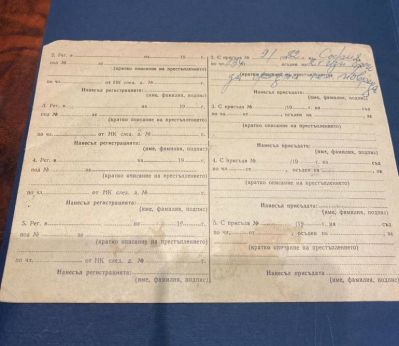 2. Рег. в на 19 г.
под № за
(кратко описание на престъплението)
по чл. от НК след. д. №
Нанесъл регистрацията:
(име, фамилия, подпис)
3. Рег. в на 19 г.
под № за
(кратко описание на престъплението)
по чл. от НК след. д. №
Нанесъл регистрацията:
(име, фамилия, подпис)
4. Рег. в на 19 г.
под № за
(кратко описание на престъплението)
по чл. от НК след. д. №
Нанесъл регистрацията:
(име, фамилия, подпис)
5. Рег. в на 19 г.
под № за
(кратко описание на престъплението)
по чл. от НК след. д. №
Нанесъл регистрацията:
(име, фамилия, подпис)
2. С присъда № 91 82 София
по чл. осъден
(кратко описание на престъплението)
Нанесъл присъдата:
(име, фамилия, подпис)
3. С присъда № /19 г. на съд
по чл. от , осъден на , за
(кратко описание на престъплението)
Нанесъл присъдата:
(име, фамилия, подпис)
4. С присъда № /19 г. на съд
по чл. от , осъден на за
(кратко описание на престъплението)
Нанесъл присъдата:
(име, фамилия, подпис)
5. С присъда № /19 г. на съд
по чл. от , осъден на , за
(кратко описание на престъплението)
Нанесъл присъдата:
(име, фамилия, подпис)